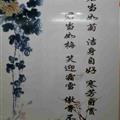 当如菊 洁身自好 寒芳自赏
当如梅 笑迎霜雪 傲骨